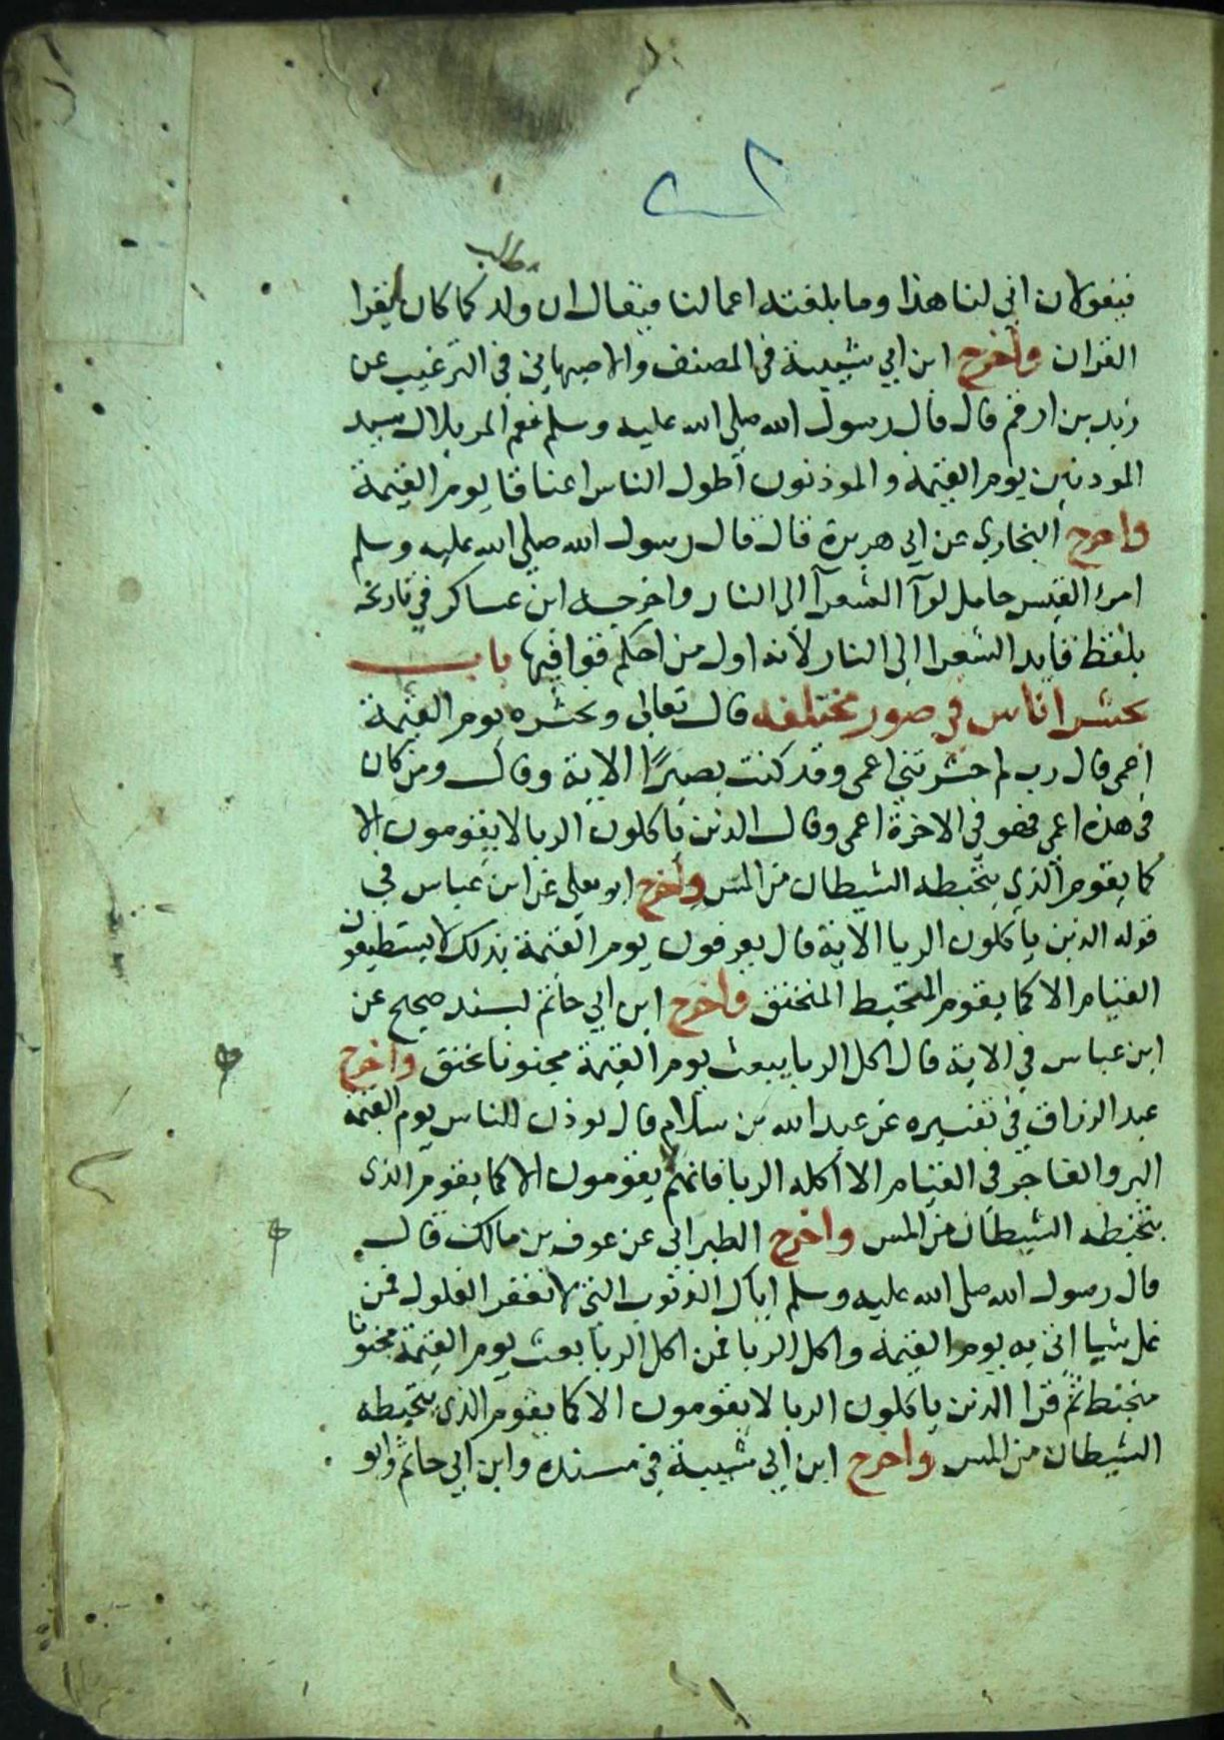 مطلب
فيقولان اني لنا هذا وما بلغته اعمالنا فيقال ان ولدكما كان يقرا
القران واخرج ابن ابي شيبة في المصنف والاصبهاني في الترغيب عن
زيد بن ارقم قال قال رسول الله صلي الله عليه وسلم نعم المر بلال سيد
الموذنين يوم القيمة والموذنون اطول الناس اعناقا يوم القيمة
واخرج البخاري عن ابي هريرة قال قال رسول الله صلي الله عليه وسلم
امرئ القيس حامل لوآ الشعرآ الى النار واخرجه ابن عساكر في تاريخه
بلفظ قايد الشعرا الى النار لانه اول من احكم قوافيها باب
يحشر اناس في صور مختلفه قال تعالى ونحشره يوم القيمة
اعمى قال رب لم حشرتني اعمى وقد كنت بصيرًا الاية وقال ومن كان
في هذه اعمى فهو في الاخرة اعمى وقال الذين ياكلون الربا لا يقومون الا
كما يقوم الذي يتخبطه الشيطان من المس واخرج ابو يعلي عن ابن عباس في
قوله الذين ياكلون الربا الاية قال يعرفون يوم القيمة بذلك لا يستطيعون
القيام الا كما يقوم المتخبط المنخنق واخرج ابن ابي حاتم بسند صحيح عن
ابن عباس في الاية قال اكل الربا يبعث يوم القيمة مجنونا يخنق واخرج
عبد الرزاق في تفسيره عن عبد الله بن سلام قال يوذن للناس يوم القيمة
البر والفاجر في القيام الا اكله الربا فانهم لا يقومون الا كما يقوم الذي
يتخبطه الشيطان من المس واخرج الطبراني عن عوف بن مالك قال
قال رسول الله صلى الله عليه وسلم اياك الذنوب التي لا تغفر الغلول فمن
غل شيا اتى به يوم القيمة واكل الربا فمن اكل الربا بعث يوم القيمة مجنونا
يتخبط ثم قرا الذين ياكلون الربا لا يقومون الا كما يقوم الذي يتخبطه
الشيطان من المس واخرج ابن ابي شيبة في مسنده وابن ابي حاتم وابو